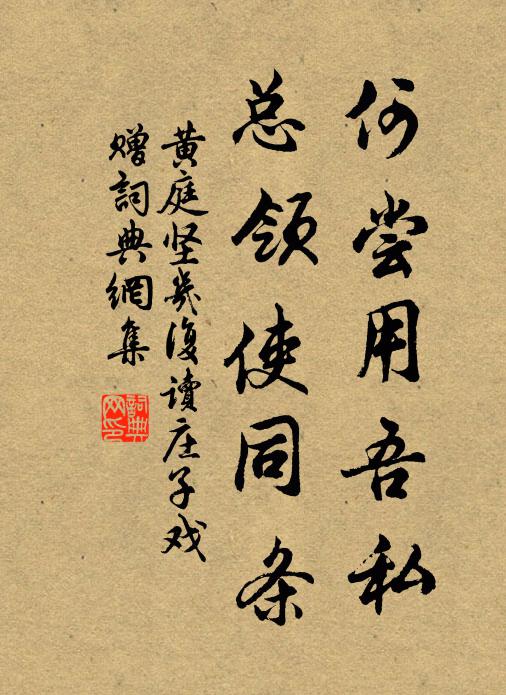 何尝用吾私
总领使同条
黄庭坚几复读庄子戏
赠詞典網集
詞典网印